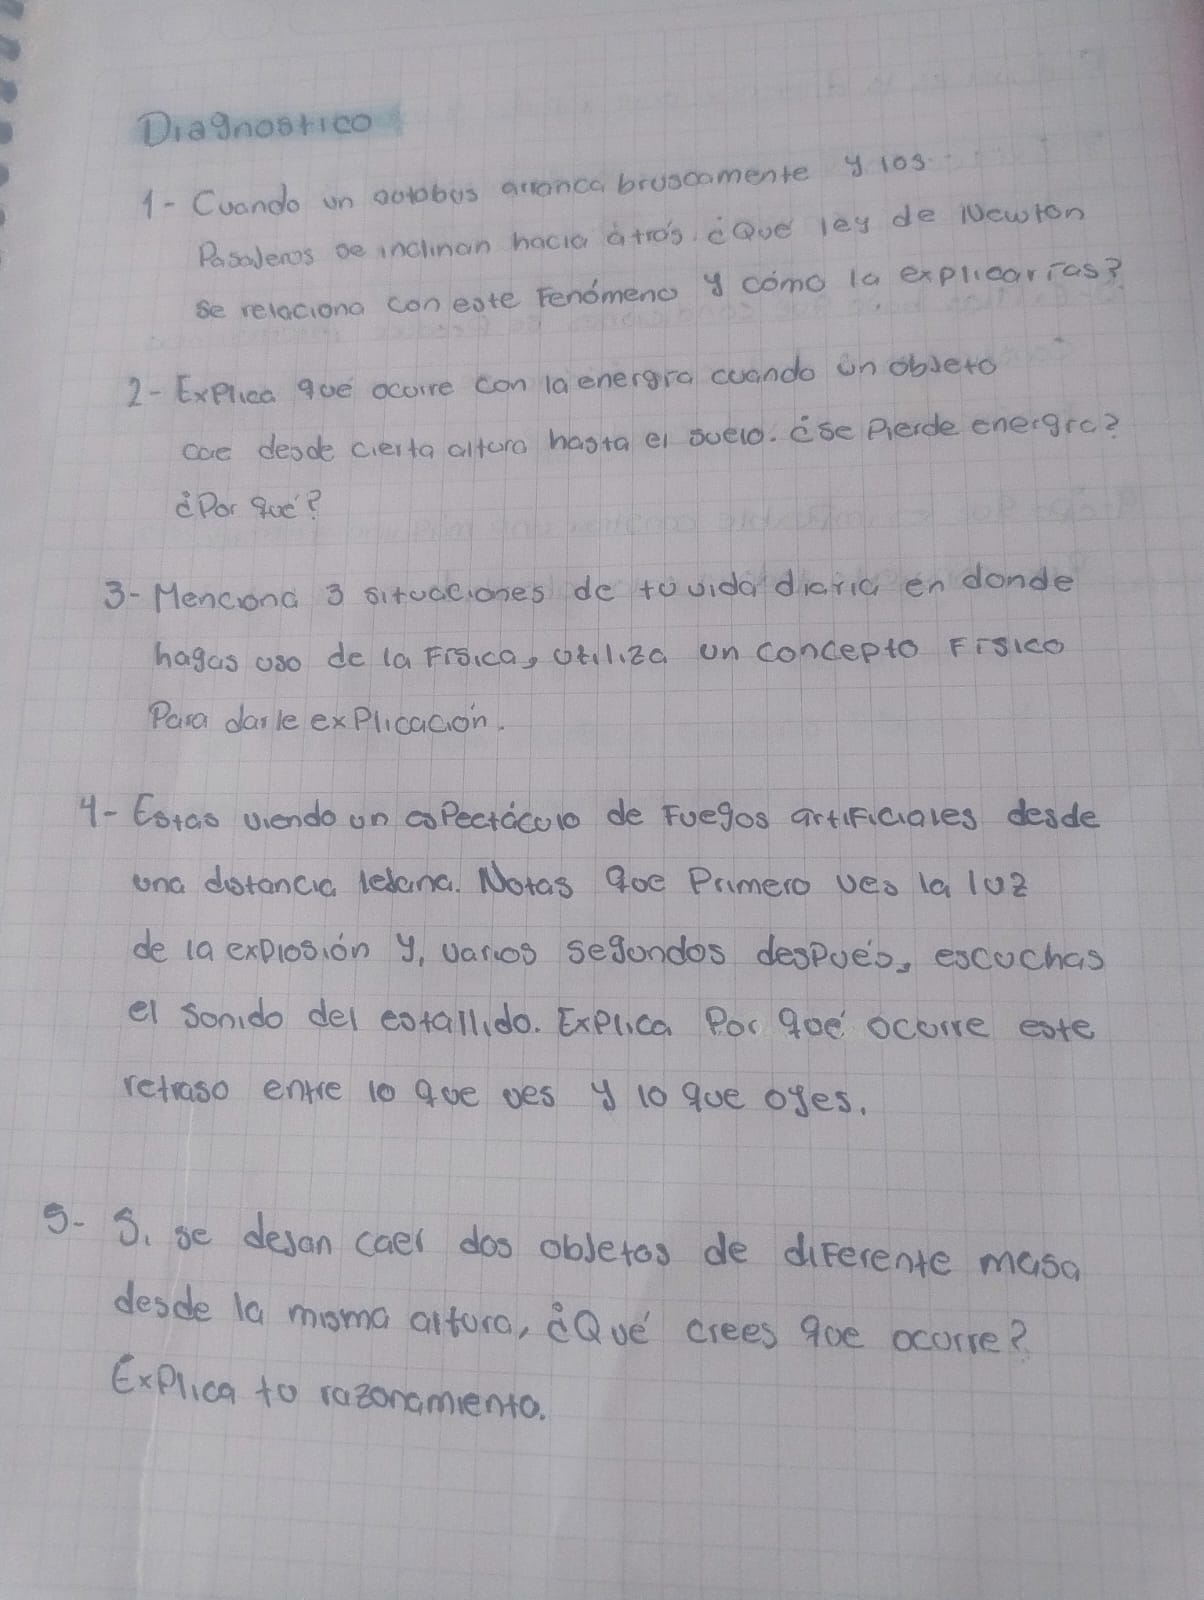 Diagnostico
1- Cuando un autobus arranca bruscamente y los
Pasajeros se inclinan hacia atrás. ¿Qué ley de Newton
se relaciona con este Fenómeno y cómo la explicarías?
2- Explica qué ocurre con la energía cuando un objeto
cae desde cierta altura hasta el suelo. ¿Se Pierde energía?
¿Por qué?
3- Menciona 3 situaciones de tu vida diaria en donde
hagas uso de la Física, utiliza un concepto Físico
Para darle explicación.
4- Estas viendo un espectáculo de Fuegos artificiales desde
una distancia lejana. Notas que Primero ves la luz
de la explosión y, varios segundos después, escuchas
el sonido del estallido. Explica Por qué ocurre este
retraso entre lo que ves y lo que oyes.
5- Si se dejan caer dos objetos de diferente masa
desde la misma altura, ¿Qué crees que ocurre?
Explica tu razonamiento.